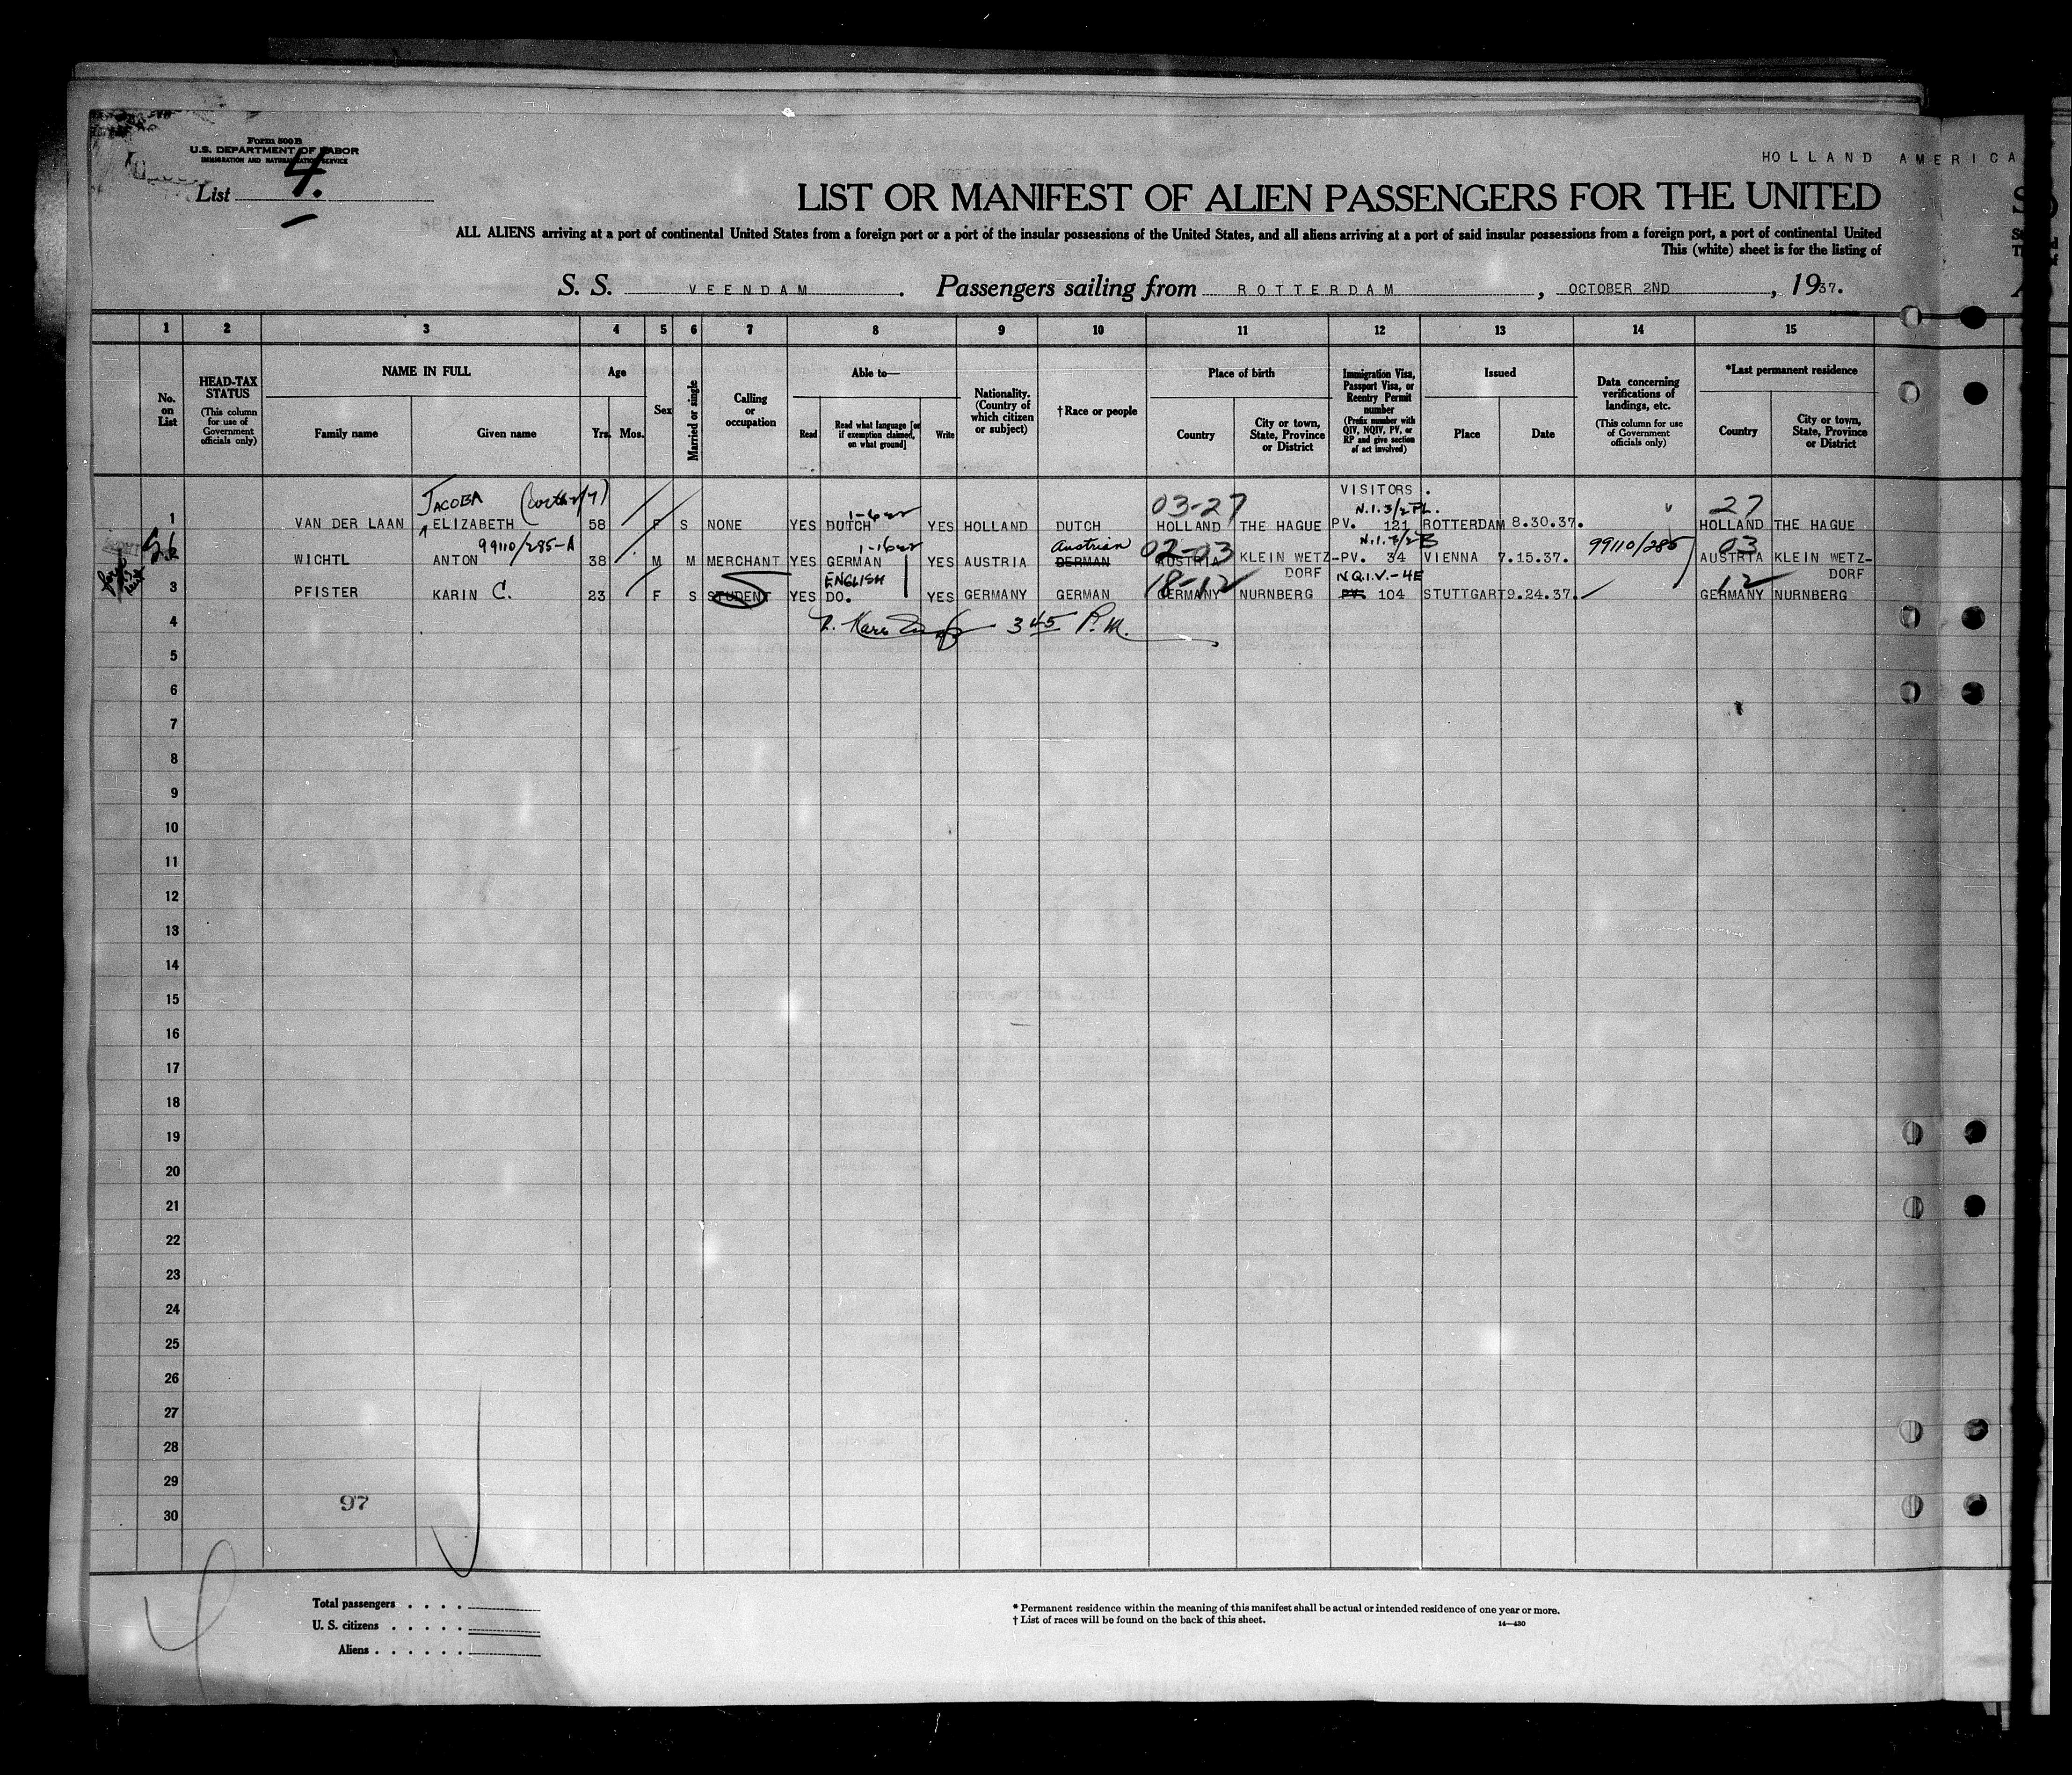 Form 500B
U.S. DEPARTMENT OF LABOR
IMMIGRATION AND NATURALIZATION SERVICE
List 4.
HOLLAND AMERICA
LIST OR MANIFEST OF ALIEN PASSENGERS FOR THE UNITED
ALL ALIENS arriving at a port of continental United States from a foreign port or a port of the insular possessions of the United States, and all aliens arriving at a port of said insular possessions from a foreign port, a port of continental United
This (white) sheet is for the listing of
S. S. VEENDAM . Passengers sailing from ROTTERDAM , OCTOBER 2ND , 1937.
1 2 3 4 5 6 7 8 9 10 11 12 13 14 15
No. on List
HEAD-TAX STATUS (This column for use of Government officials only)
NAME IN FULL
Family name
Given name
Age
Yrs. Mos.
Sex
Married or single
Calling or occupation
Able to—
Read
Read what language [or if exemption claimed, on what ground]
Write
Nationality. (Country of which citizen or subject)
†Race or people
Place of birth
Country
City or town, State, Province or District
Immigration Visa, Passport Visa, or Reentry Permit number (Prefix number with QIV, NQIV, PV, or RP and give section of act involved)
Issued
Place
Date
Data concerning verifications of landings, etc. (This column for use of Government officials only)
*Last permanent residence
Country
City or town, State, Province or District
VISITORS.
JACOBA 03-27 N.I.3/2 PL. 27
1 VAN DER LAAN ELIZABETH 58 F S NONE YES DUTCH YES HOLLAND DUTCH HOLLAND THE HAGUE PV. 121 ROTTERDAM 8.30.37. HOLLAND THE HAGUE
99110/285-A Austrian 02-03 N.I.3/2 B 99110/285 03
2 WICHTL ANTON 38 M M MERCHANT YES GERMAN YES AUSTRIA GERMAN AUSTRIA KLEIN WETZ- PV. 34 VIENNA 7.15.37. AUSTRIA KLEIN WETZ-
ENGLISH 18-12 DORF N.Q.I.V.-4E 12 DORF
3 PFISTER KARIN C. 23 F S STUDENT YES DO. YES GERMANY GERMAN GERMANY NURNBERG PV. 104 STUTTGART 9.24.37. GERMANY NURNBERG
4 3 45 P.M.
5
6
7
8
9
10
11
12
13
14
15
16
17
18
19
20
21
22
23
24
25
26
27
28
29
97
30
Total passengers . . . .
U. S. citizens . . . . .
Aliens . . . . . .
* Permanent residence within the meaning of this manifest shall be actual or intended residence of one year or more.
† List of races will be found on the back of this sheet.
14—430